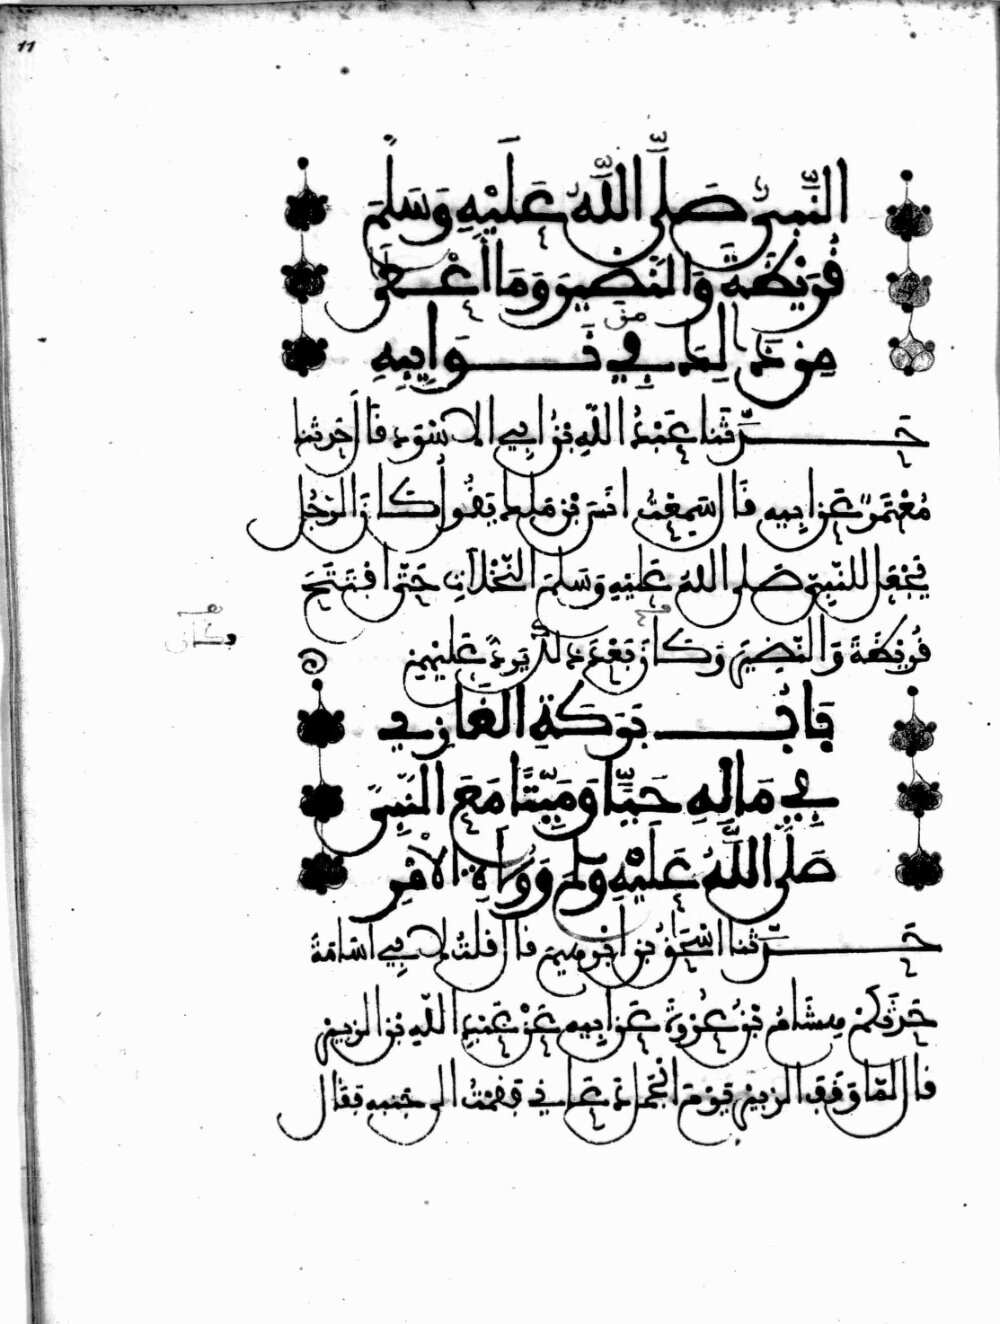 11
النَّبِيُّ صَلَّى اللَّهُ عَلَيْهِ وَسَلَّمَ
قُرَيْظَةَ وَالنَّضِيرَ وَمَا أَعْطَى
مِنْ ذَلِكَ فِي نَوَايِبِهِ
مِنْ
حَدَّثَنَا عَبْدُ اللَّهِ بْنُ أَبِي الاسْوَدِ قَالَ حَدَّثَنَا
مُعْتَمِرٌ عَنْ أَبِيهِ قَالَ سَمِعْتُ أَنَسَ بْنَ مَلِكٍ يَقُولُ كَانَ الرَّجُلُ
يَجْعَلُ لِلنَّبِيِّ صَلَّى اللَّهُ عَلَيْهِ وَسَلَّمَ النَّخْلَاتِ حَتَّى افْتَتَحَ
قُرَيْظَةَ وَالنَّضِيرَ وَكَانَ بَعْدَ ذَلِكَ يَرُدُّ عَلَيْهِمْ
وكان
بَابُ بَرَكَةِ الْغَازِي
فِي مَالِهِ حَيًّا وَمَيِّتًا مَعَ النَّبِيِّ
صَلَّى اللَّهُ عَلَيْهِ وَسَلَّمَ وَوُلَاةِ الْأَمْرِ
حَدَّثَنَا إِسْحَقُ بْنُ إِبْرَهِيمَ قَالَ قُلْتُ لِأَبِي أُسَامَةَ
حَدَّثَكُمْ هِشَامُ بْنُ عُرْوَةَ عَنْ أَبِيهِ عَنْ عَبْدِ اللَّهِ بْنِ الزُّبَيْرِ
قَالَ لَمَّا وَقَفَ الزُّبَيْرُ يَوْمَ الْجَمَلِ دَعَانِي فَقُمْتُ إِلَى جَنْبِهِ فَقَالَ